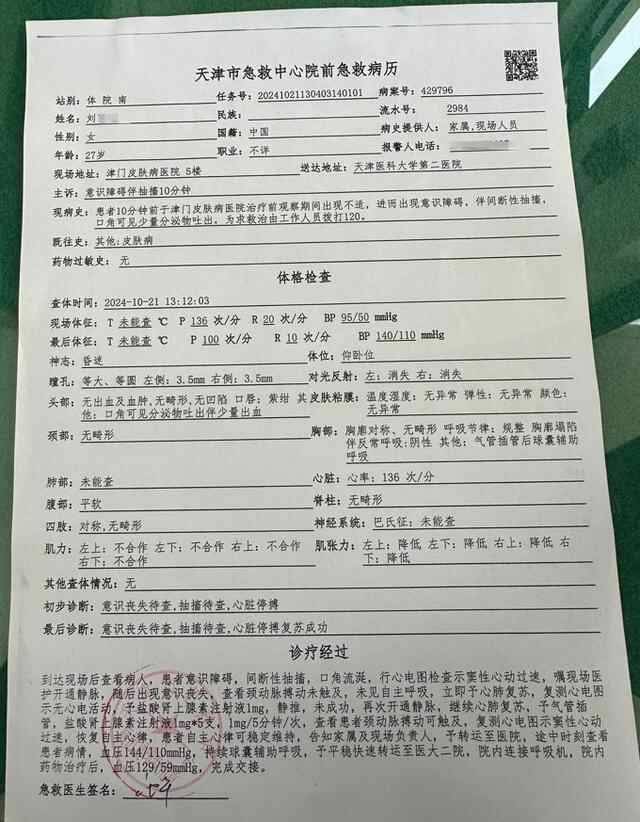 天津市急救中心院前急救病历
站别：体 院 南 任务号：20241021130403140101 病案号：429796
姓名：刘 民族： 流水号： 2984
性别：女 国籍：中国 病史提供人：家属,现场人员
年龄：27岁 职业：不详 报警人电话：
现场地址：津门皮肤病医院 5楼 送达地址：天津医科大学第二医院
主诉：意识障碍伴抽搐10分钟
现病史：患者10分钟前于津门皮肤病医院治疗前观察期间出现不适，进而出现意识障碍，伴间断性抽搐，
口角可见少量分泌物吐出。为求救治由工作人员拨打120。
既往史：其他:皮肤病
药物过敏史：无
体格检查
查体时间：2024-10-21 13:12:03
现场体征：T 未能查 ℃ P 136 次/分 R 20 次/分 BP 95/50 mmHg
最后体征：T 未能查 ℃ P 100 次/分 R 10 次/分 BP 140/110 mmHg
神志：昏迷 体位：仰卧位
瞳孔：等大、等圆 左侧：3.5mm 右侧：3.5mm 对光反射：左：消失 右：消失
头部：无出血及血肿,无畸形,无凹陷 口唇：紫绀 其他：口角可见分泌物吐出伴少量出血
皮肤粘膜：温度湿度：无异常 弹性：无异常 颜色：无异常
颈部：无畸形
胸部：胸廓对称、无畸形 呼吸节律：规整 胸廓塌陷伴反常呼吸:阴性 其他：气管插管后球囊辅助呼吸
肺部：未能查 心脏：心率：136 次/分
腹部：平软 脊柱：无畸形
四肢：对称,无畸形 神经系统：巴氏征：未能查
肌力：左上：不合作 左下：不合作 右上：不合作 右下：不合作
肌张力：左上：降低 左下：降低 右上：降低 右下：降低
其他查体情况：无
初步诊断：意识丧失待查,抽搐待查,心脏停搏
最后诊断：意识丧失待查,抽搐待查,心脏停搏复苏成功
诊疗经过
到达现场后查看病人，患者意识障碍，间断性抽搐，口角流涎，行心电图检查示窦性心动过速，嘱现场医
护开通静脉，随后出现意识丧失，查看颈动脉搏动未触及，未见自主呼吸，立即予心肺复苏，复测心电图
示无心电活动，予盐酸肾上腺素注射液1mg，静推，未成功，再次开通静脉，继续心肺复苏，予气管插
管，盐酸肾上腺素注射液1mg*5支，1mg/5分钟/次，查看患者颈动脉搏动可触及，复测心电图示窦性心动
过速，恢复自主心律，患者自主心律可稳定维持，告知家属及现场负责人，予转运至医院，途中时刻查看
患者病情，血压144/110mmHg，持续球囊辅助呼吸，予平稳快速转运至医大二院，院内连接呼吸机，院内
药物治疗后，血压129/59mmHg，完成交接。
急救医生签名：